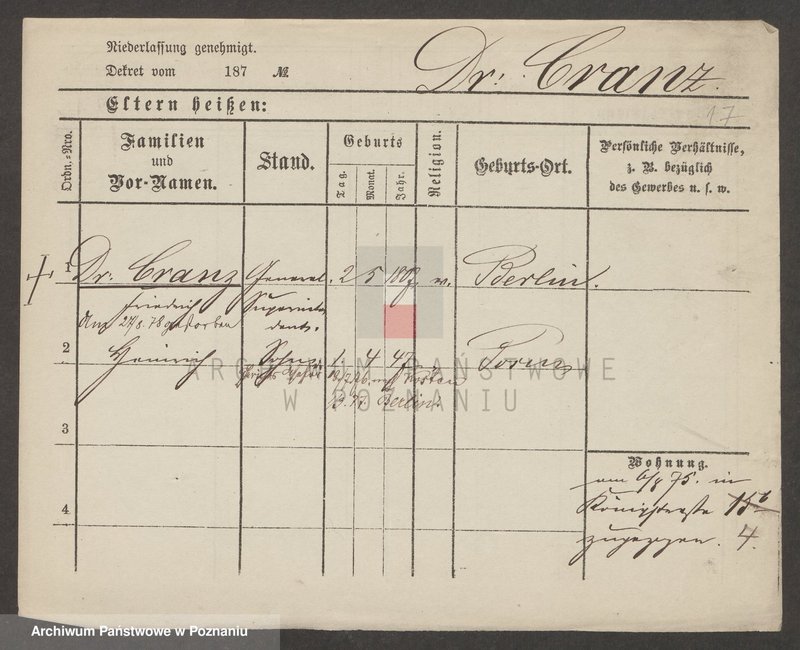 Niederlassung genehmigt.
Dekret vom 187 №
Dr. Cranz.
17
Eltern heißen:
Ordn.-Nro.
Familien
und
Vor-Namen.
Stand.
Geburts
Tag.
Monat.
Jahr.
Religion.
Geburts-Ort.
Persönliche Verhältnisse,
z. B. bezüglich
des Gewerbes u. s. w.
1 Dr. Cranz General 2 5 180 Berlin.
Friedrich Superinten
dent.
gestorben
2 Heinrich Sohn 4 47 Posen
Berlin.
3
4
Wohnung.
am 6/8 75. in
Königstraße 15b
zugezogen. 4.
ARCHIWUM PAŃSTWOWE
W POZNANIU
Archiwum Państwowe w Poznaniu